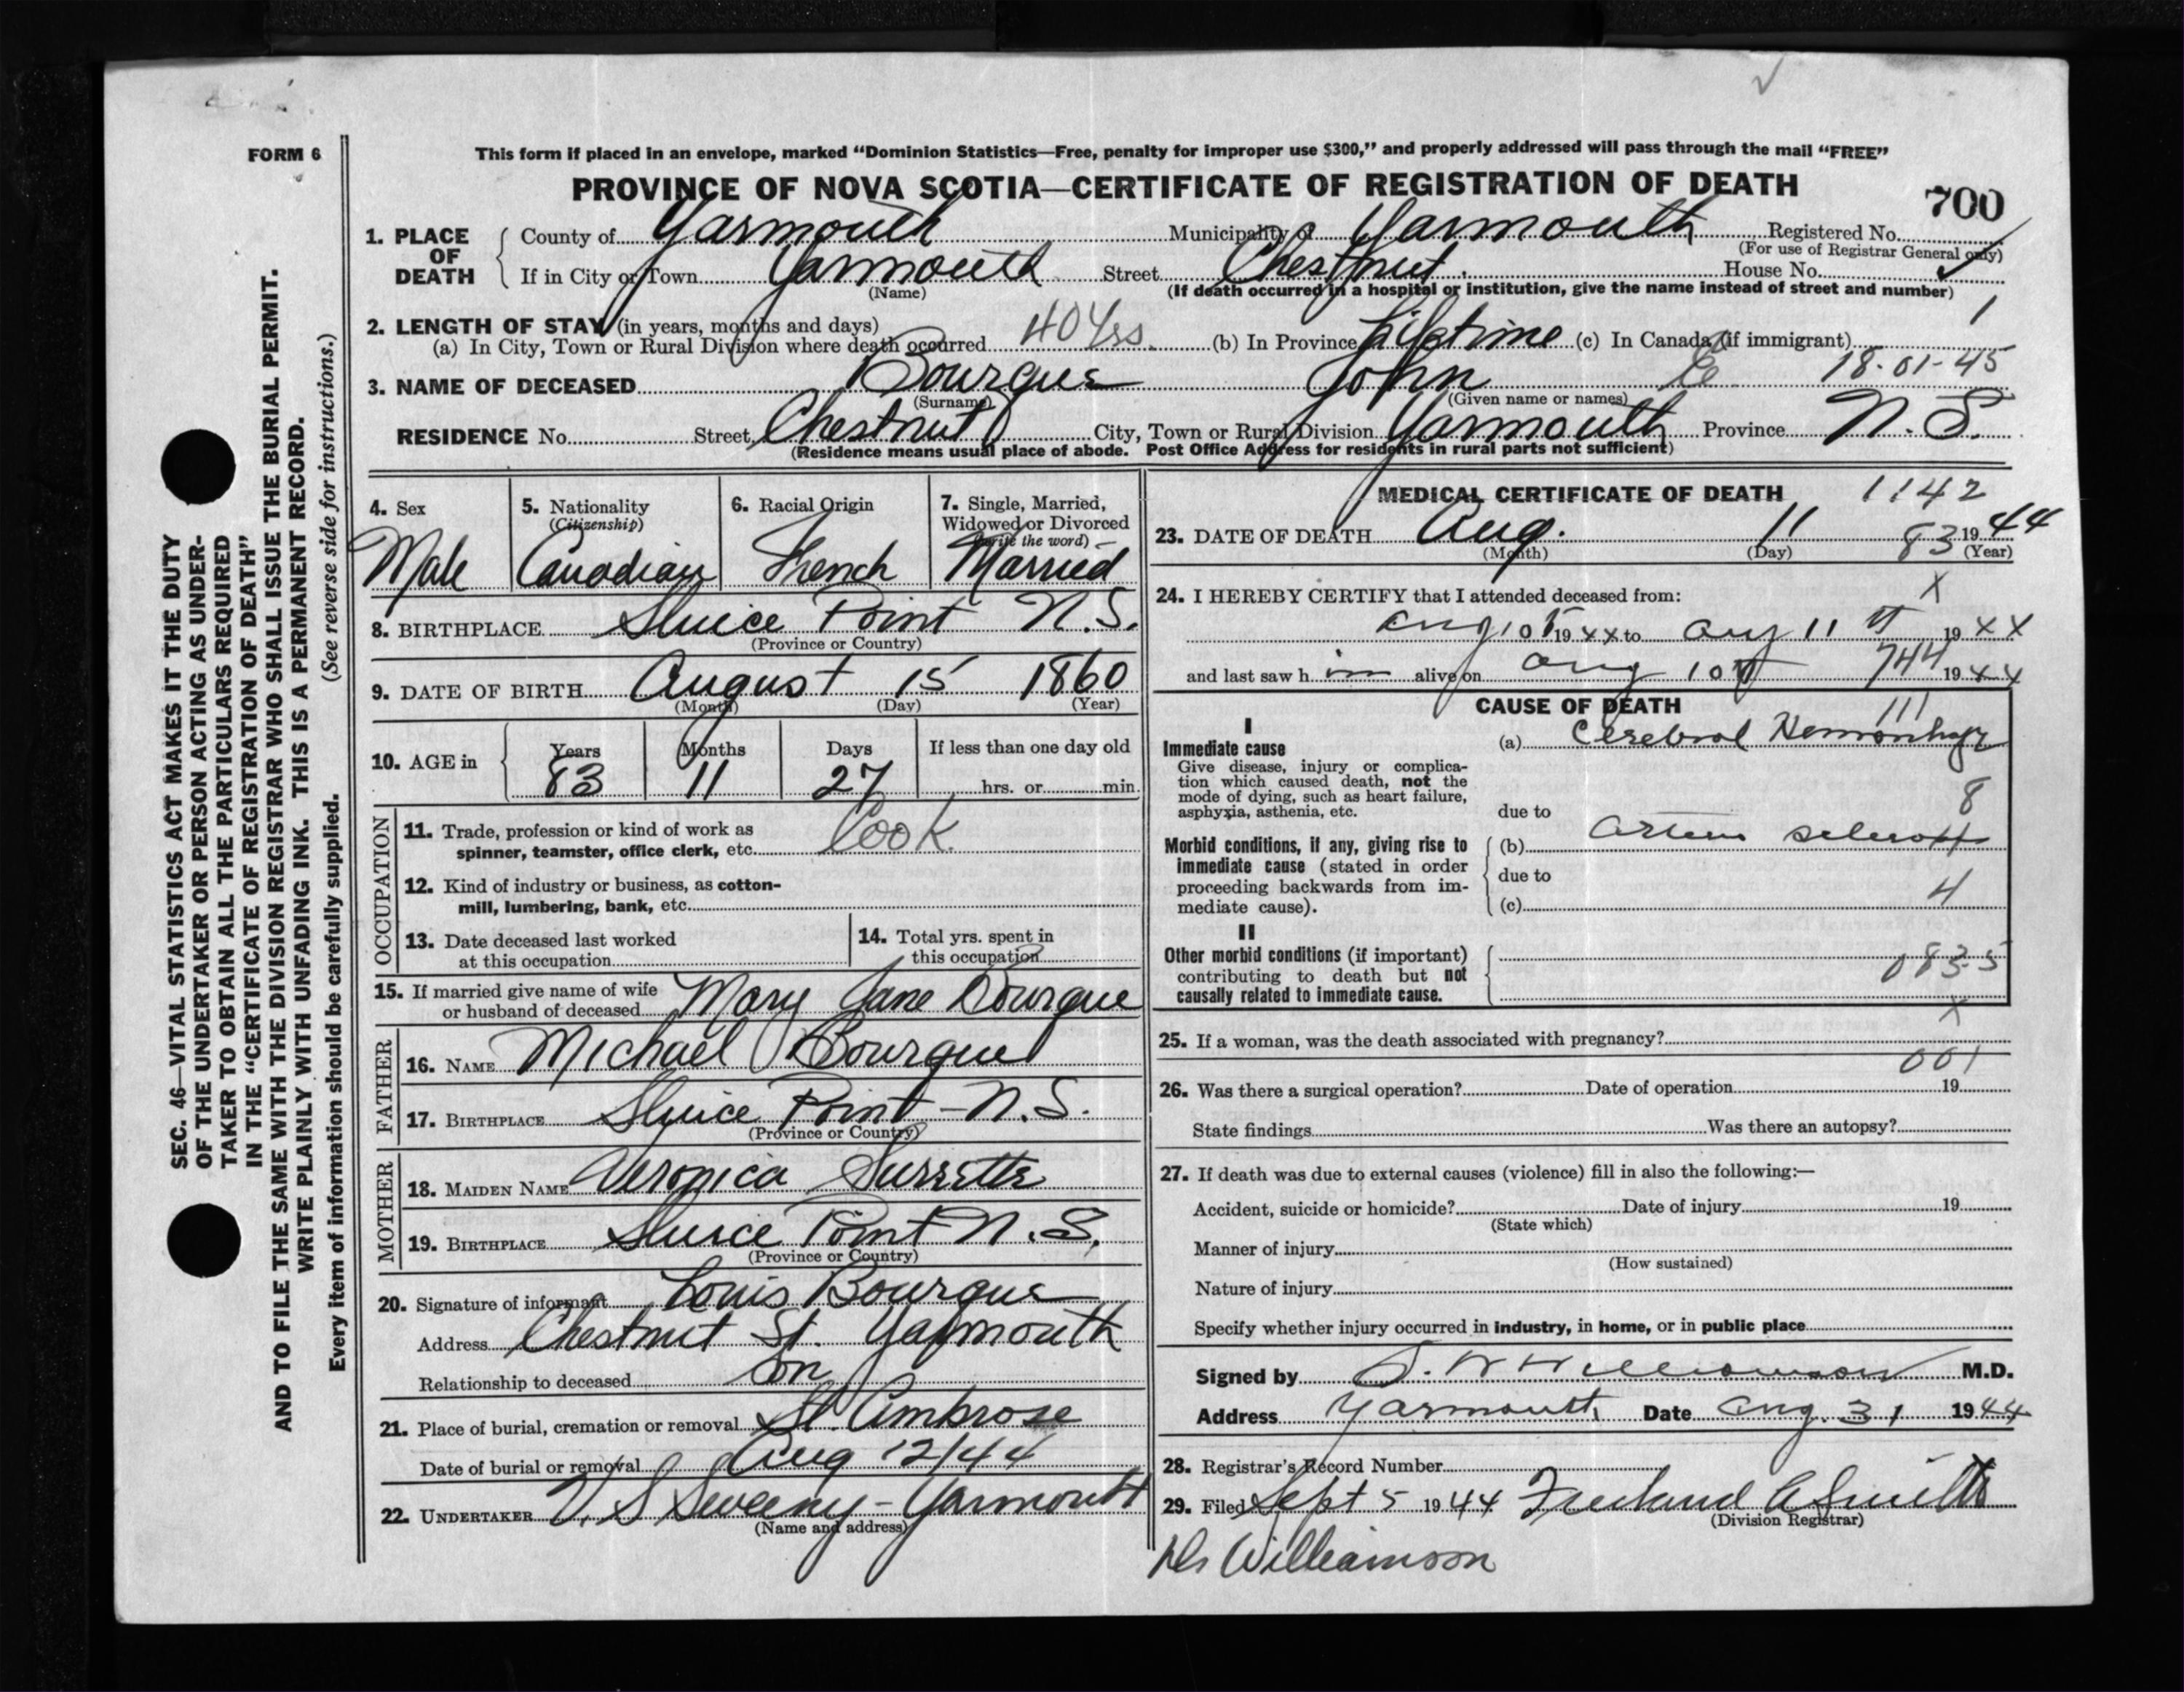 FORM 6
This form if placed in an envelope, marked “Dominion Statistics—Free, penalty for improper use $300,” and properly addressed will pass through the mail “FREE”
PROVINCE OF NOVA SCOTIA—CERTIFICATE OF REGISTRATION OF DEATH
700
1. PLACE OF DEATH
County of Yarmouth Municipality of Yarmouth Registered No.
(For use of Registrar General only)
If in City or Town Yarmouth Street Chestnut. House No.
(Name) (If death occurred in a hospital or institution, give the name instead of street and number)
2. LENGTH OF STAY (in years, months and days) 1
(a) In City, Town or Rural Division where death occurred 40 Yrs. (b) In Province Lifetime (c) In Canada (if immigrant)
18-01-45
3. NAME OF DECEASED Bourque John
(Surname) (Given name or names)
RESIDENCE No. Street Chestnut City, Town or Rural Division Yarmouth Province N. S.
(Residence means usual place of abode. Post Office Address for residents in rural parts not sufficient)
4. Sex
Male
5. Nationality
(Citizenship)
Canadian
6. Racial Origin
French
7. Single, Married,
Widowed or Divorced
(write the word)
Married
8. BIRTHPLACE Sluice Point N.S.
(Province or Country)
9. DATE OF BIRTH August 15 1860
(Month) (Day) (Year)
10. AGE in
Years Months Days If less than one day old
83 11 27 hrs. or min.
OCCUPATION
11. Trade, profession or kind of work as
spinner, teamster, office clerk, etc. Cook.
12. Kind of industry or business, as cotton-
mill, lumbering, bank, etc.
13. Date deceased last worked
at this occupation
14. Total yrs. spent in
this occupation
15. If married give name of wife
or husband of deceased Mary Jane Bourque
FATHER
16. NAME Michael Bourque
17. BIRTHPLACE Sluice Point - N.S.
(Province or Country)
MOTHER
18. MAIDEN NAME Veronica Surrette
19. BIRTHPLACE Sluice Point N.S.
(Province or Country)
20. Signature of informant Louis Bourque
Address Chestnut St. Yarmouth
Relationship to deceased Son
21. Place of burial, cremation or removal St. Ambrose
Date of burial or removal Aug 12/44
22. UNDERTAKER V. S Sweeny - Yarmouth
(Name and address)
MEDICAL CERTIFICATE OF DEATH 1142
23. DATE OF DEATH Aug. 11 1944
(Month) (Day) 83 (Year)
24. I HEREBY CERTIFY that I attended deceased from: X
Aug 10 19 44 to Aug 11 19 44
744
and last saw h im alive on Aug 10 19 44
CAUSE OF DEATH
111
I
Immediate cause
Give disease, injury or complica-
tion which caused death, not the
mode of dying, such as heart failure,
asphyxia, asthenia, etc.
(a) Cerebral Hemorrhage
8
due to
Morbid conditions, if any, giving rise to
immediate cause (stated in order
proceeding backwards from im-
mediate cause).
(b)
due to
4
(c)
II
Other morbid conditions (if important)
contributing to death but not
causally related to immediate cause.
083-5
X
25. If a woman, was the death associated with pregnancy?
001
26. Was there a surgical operation? Date of operation 19
State findings Was there an autopsy?
27. If death was due to external causes (violence) fill in also the following:—
Accident, suicide or homicide? Date of injury 19
(State which)
Manner of injury
(How sustained)
Nature of injury
Specify whether injury occurred in industry, in home, or in public place
Signed by Williamson M.D.
Address Yarmouth Date Aug. 31 1944
28. Registrar's Record Number
29. Filed Sept 5 1944 Smith
(Division Registrar)
Dr Williamson
SEC. 46—VITAL STATISTICS ACT MAKES IT THE DUTY
OF THE UNDERTAKER OR PERSON ACTING AS UNDER-
TAKER TO OBTAIN ALL THE PARTICULARS REQUIRED
IN THE “CERTIFICATE OF REGISTRATION OF DEATH”
AND TO FILE THE SAME WITH THE DIVISION REGISTRAR WHO SHALL ISSUE THE BURIAL PERMIT.
WRITE PLAINLY WITH UNFADING INK. THIS IS A PERMANENT RECORD.
Every item of information should be carefully supplied. (See reverse side for instructions.)